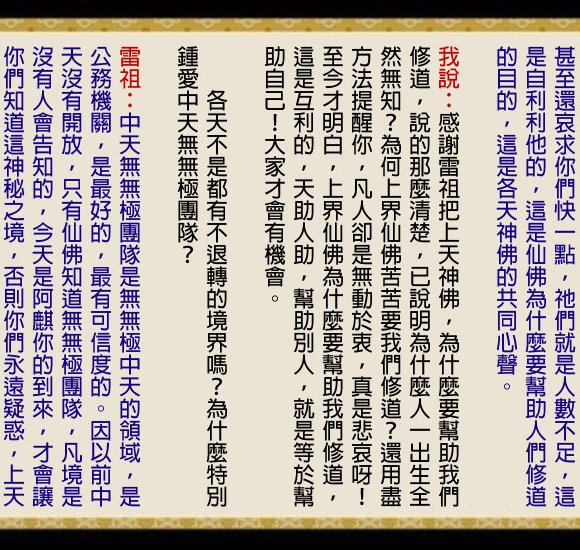 甚至還哀求你們快一點，祂們就是人數不足，這
是自利利他的，這是仙佛為什麼要幫助人們修道
的目的，這是各天神佛的共同心聲。
我說：感謝雷祖把上天神佛，為什麼要幫助我們
修道，說的那麼清楚，已說明為什麼人一出生全
然無知？為何上界仙佛苦苦要我們修道？還用盡
方法提醒你，凡人卻是無動於衷，真是悲哀呀！
至今才明白，上界仙佛為什麼要幫助我們修道，
這是互利的，天助人助，幫助別人，就是等於幫
助自己！大家才會有機會。
各天不是都有不退轉的境界嗎？為什麼特別
鍾愛中天無無極團隊？
雷祖：中天無無極團隊是無無極中天的領域，是
公務機關，是最好的，最有可信度的。因以前中
天沒有開放，只有仙佛知道無無極團隊，凡境是
沒有人會告知的，今天是阿麒你的到來，才會讓
你們知道這神秘之境，否則你們永遠疑惑，上天